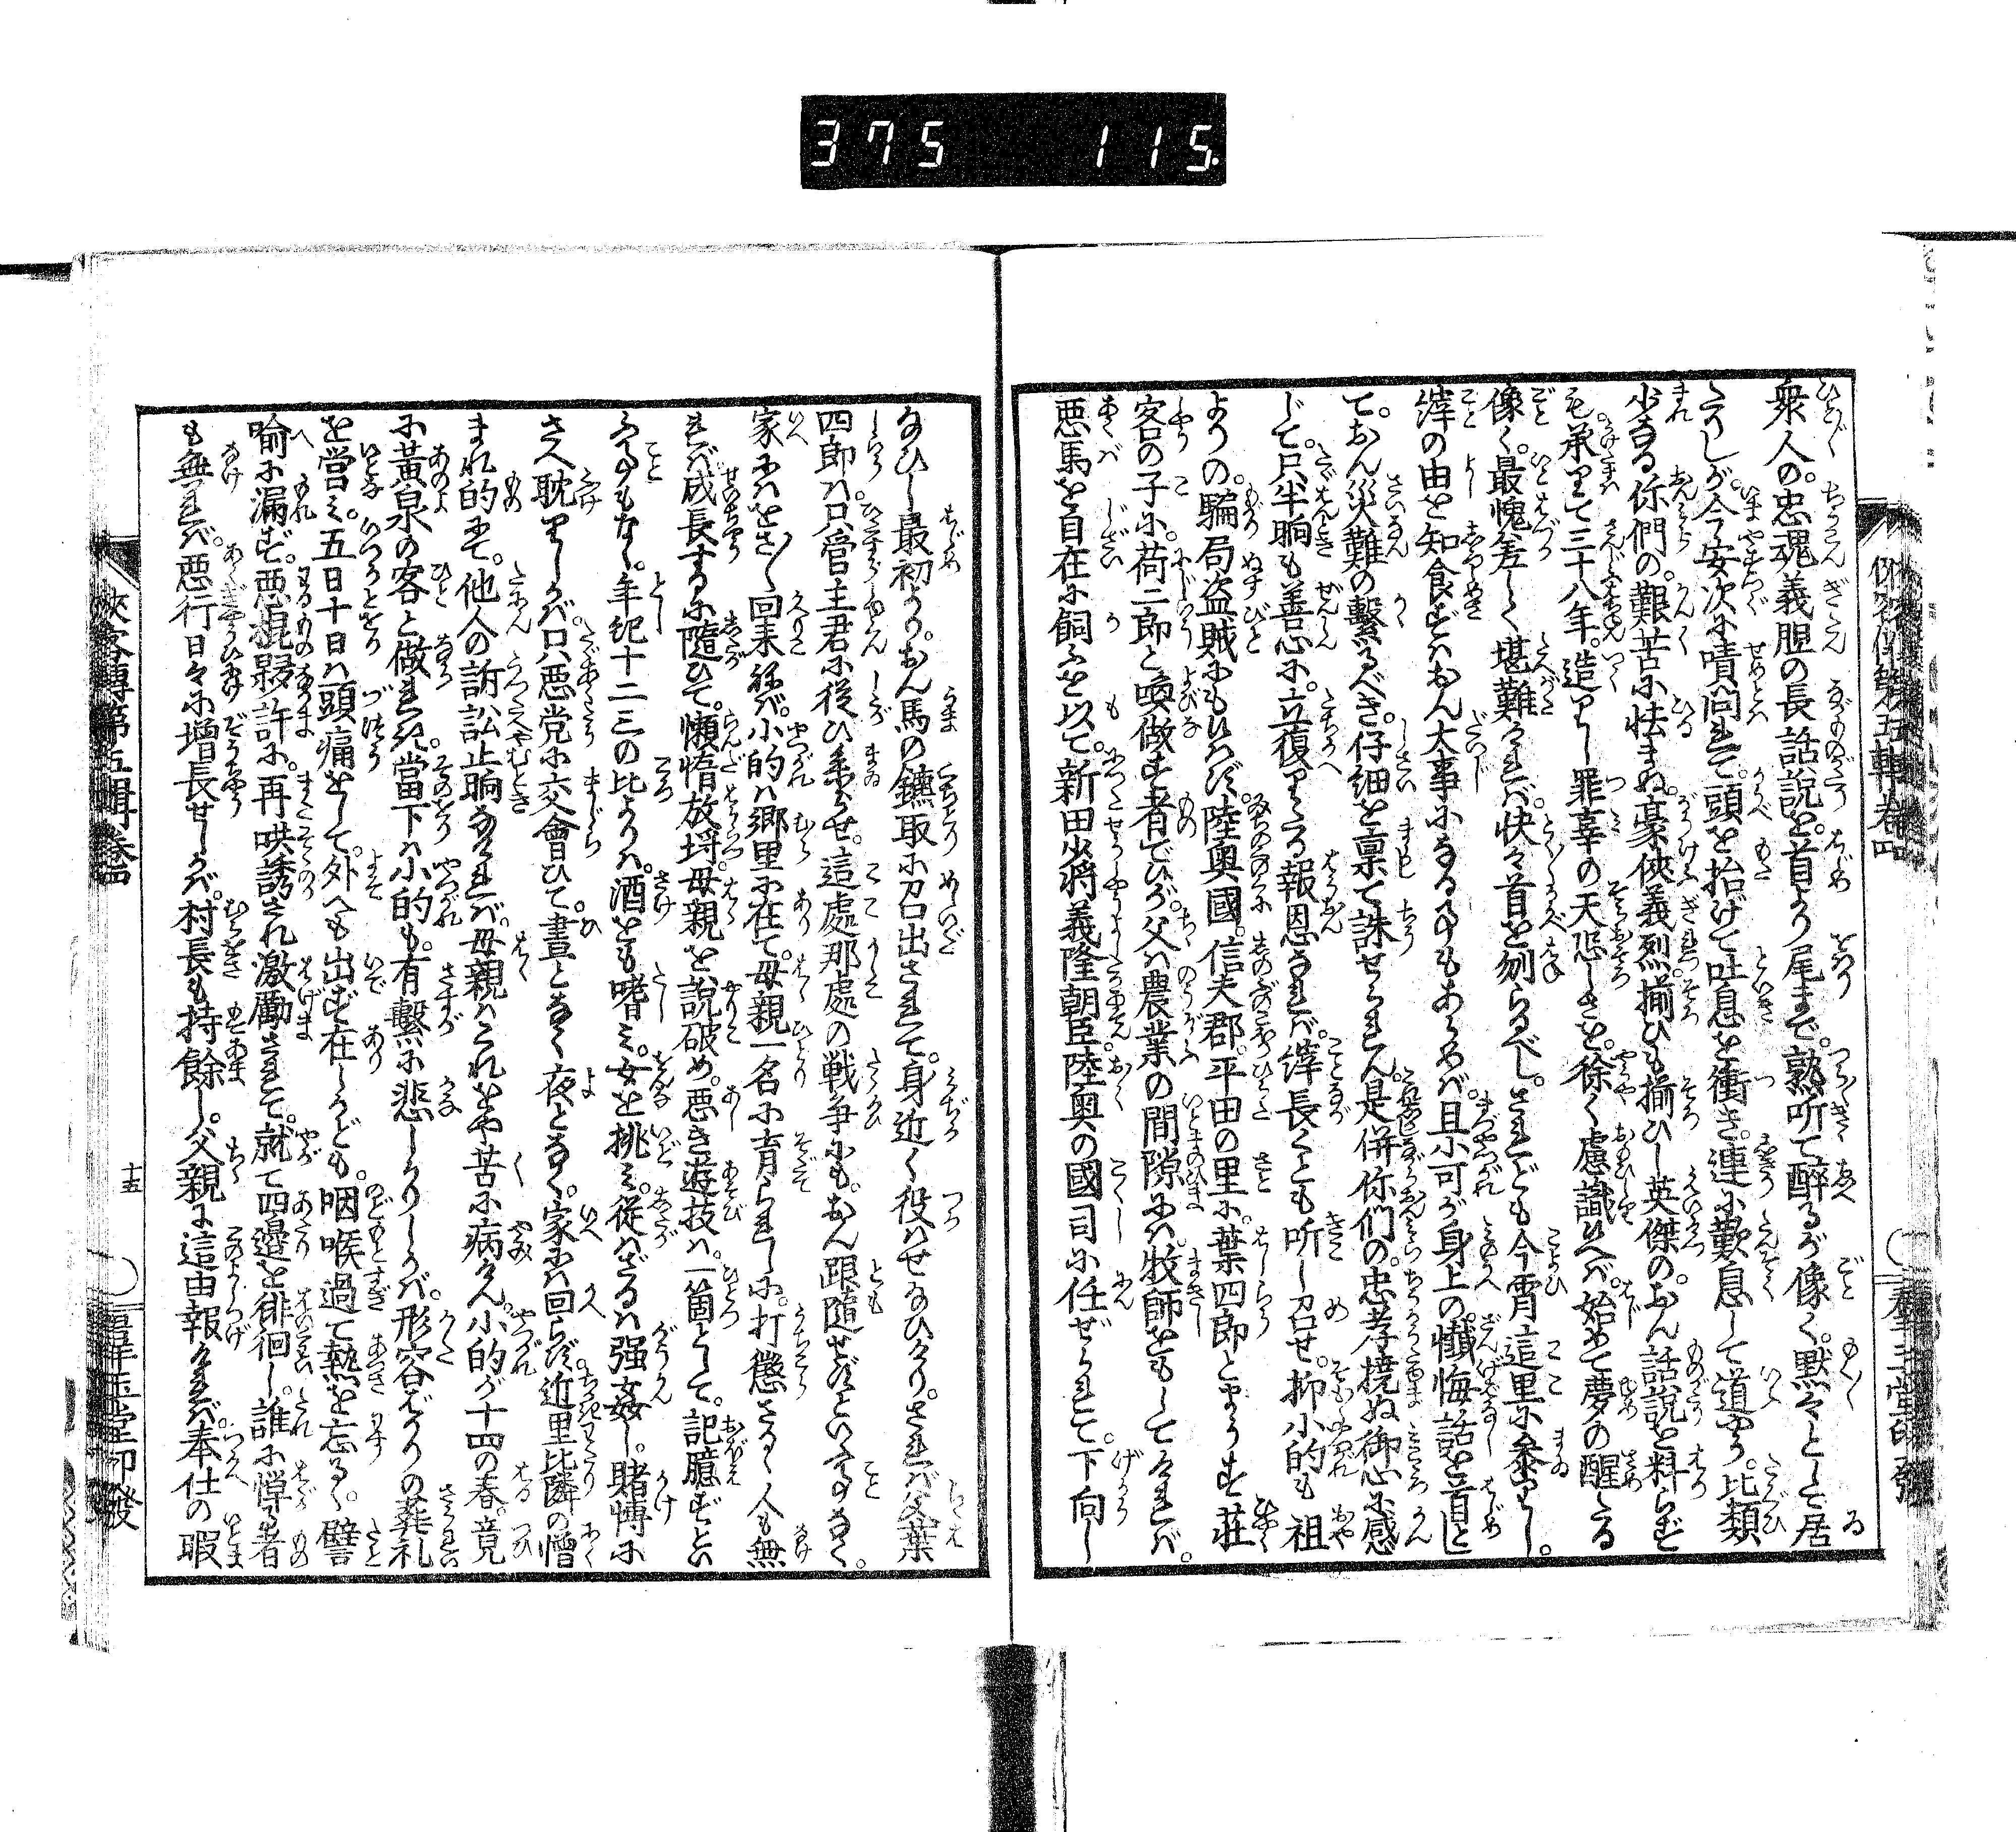 375 115
衆人の。忠魂義胆の長話説を。首より尾まで。熟听て醉るが像く。黙々として居
たりしが。今安次に嘖問れて。頭を抬げて吐息を衝き。連に歎息して道やう。比類
少なる你們の。艱苦に怯まぬ。豪侠義烈。揃ひも揃ひし英傑の。おん話説を料らず
も承りて三十八年。造りし罪辜の天恐しさを。徐く慮識れば。始めて夢の醒たる
像く。最愧羞しく堪難ければ。快々首を刎らるべし。されども今宵這里に參りし。
縡の由を知食ずはおん大事になる事もあらめば。且小可が身上の。懺悔話を首と
て。おん災難の繋るべき。仔細を禀て誅せられん。是併你們の。忠孝撓ぬ御心に感
じて。只半晌も善心に。立復りたる報恩なれば。縡長くとも听し召せ。抑小的も祖
よりの。騙局盗賊にもあらず。陸奥國。信夫郡。平田の里に。葉四郎とまうす荘
客の子に。荷二郎と喚做す者でひが。父は農業の間隙には牧師をもしてければ。
悪馬を自在に飼ふを以て。新田少将義隆朝臣。陸奥の國司に任ぜられて。下向し
給ひし最初より。おん馬の鑣取に召出されて。身近く役はせ給ひけり。されば父葉
四郎は。只管主君に従ひ奉らせ。這處那處の戦争にも。おん跟隨せずといふ事なく。
家にはをさ〳〵回来ねば。小的は郷里に在て。母親一名に育られしに。打懲さるゝ人も無
ければ。成長するに隨ひて。懶惰放埒。母親を說破め。悪き遊技は。一箇として。記臆ずとい
ふ事もなし。年紀十二三の比よりは。酒をも嗜み。女を挑み。従はざるは强姦し。賭愽に
さへ耽りしかば。只悪党に交會ひて。晝となく夜となく。家には回らず。近里比隣の憎
まれ的にて。他人の訴訟止晌なければ。母親はこれをや苦に病けん。小的が十四の春。竟
に黄泉の客と做れる。當下は小的も。有繋に悲しかりしかば。形容ばかりの葬礼
を営み。五日十日は頭痛をして。外へも出ず在しかども。咽喉過て熱を忘るゝ。譬
喩に漏ず。悪棍夥許に。再哄誘され激勵されて。就て四邉を徘徊し。誰に憚る者
も無れば。悪行日々に增長せしかば。村長も持餘し。父親に這由報ければ。奉仕の暇
俠客傳第五輯卷四
十五